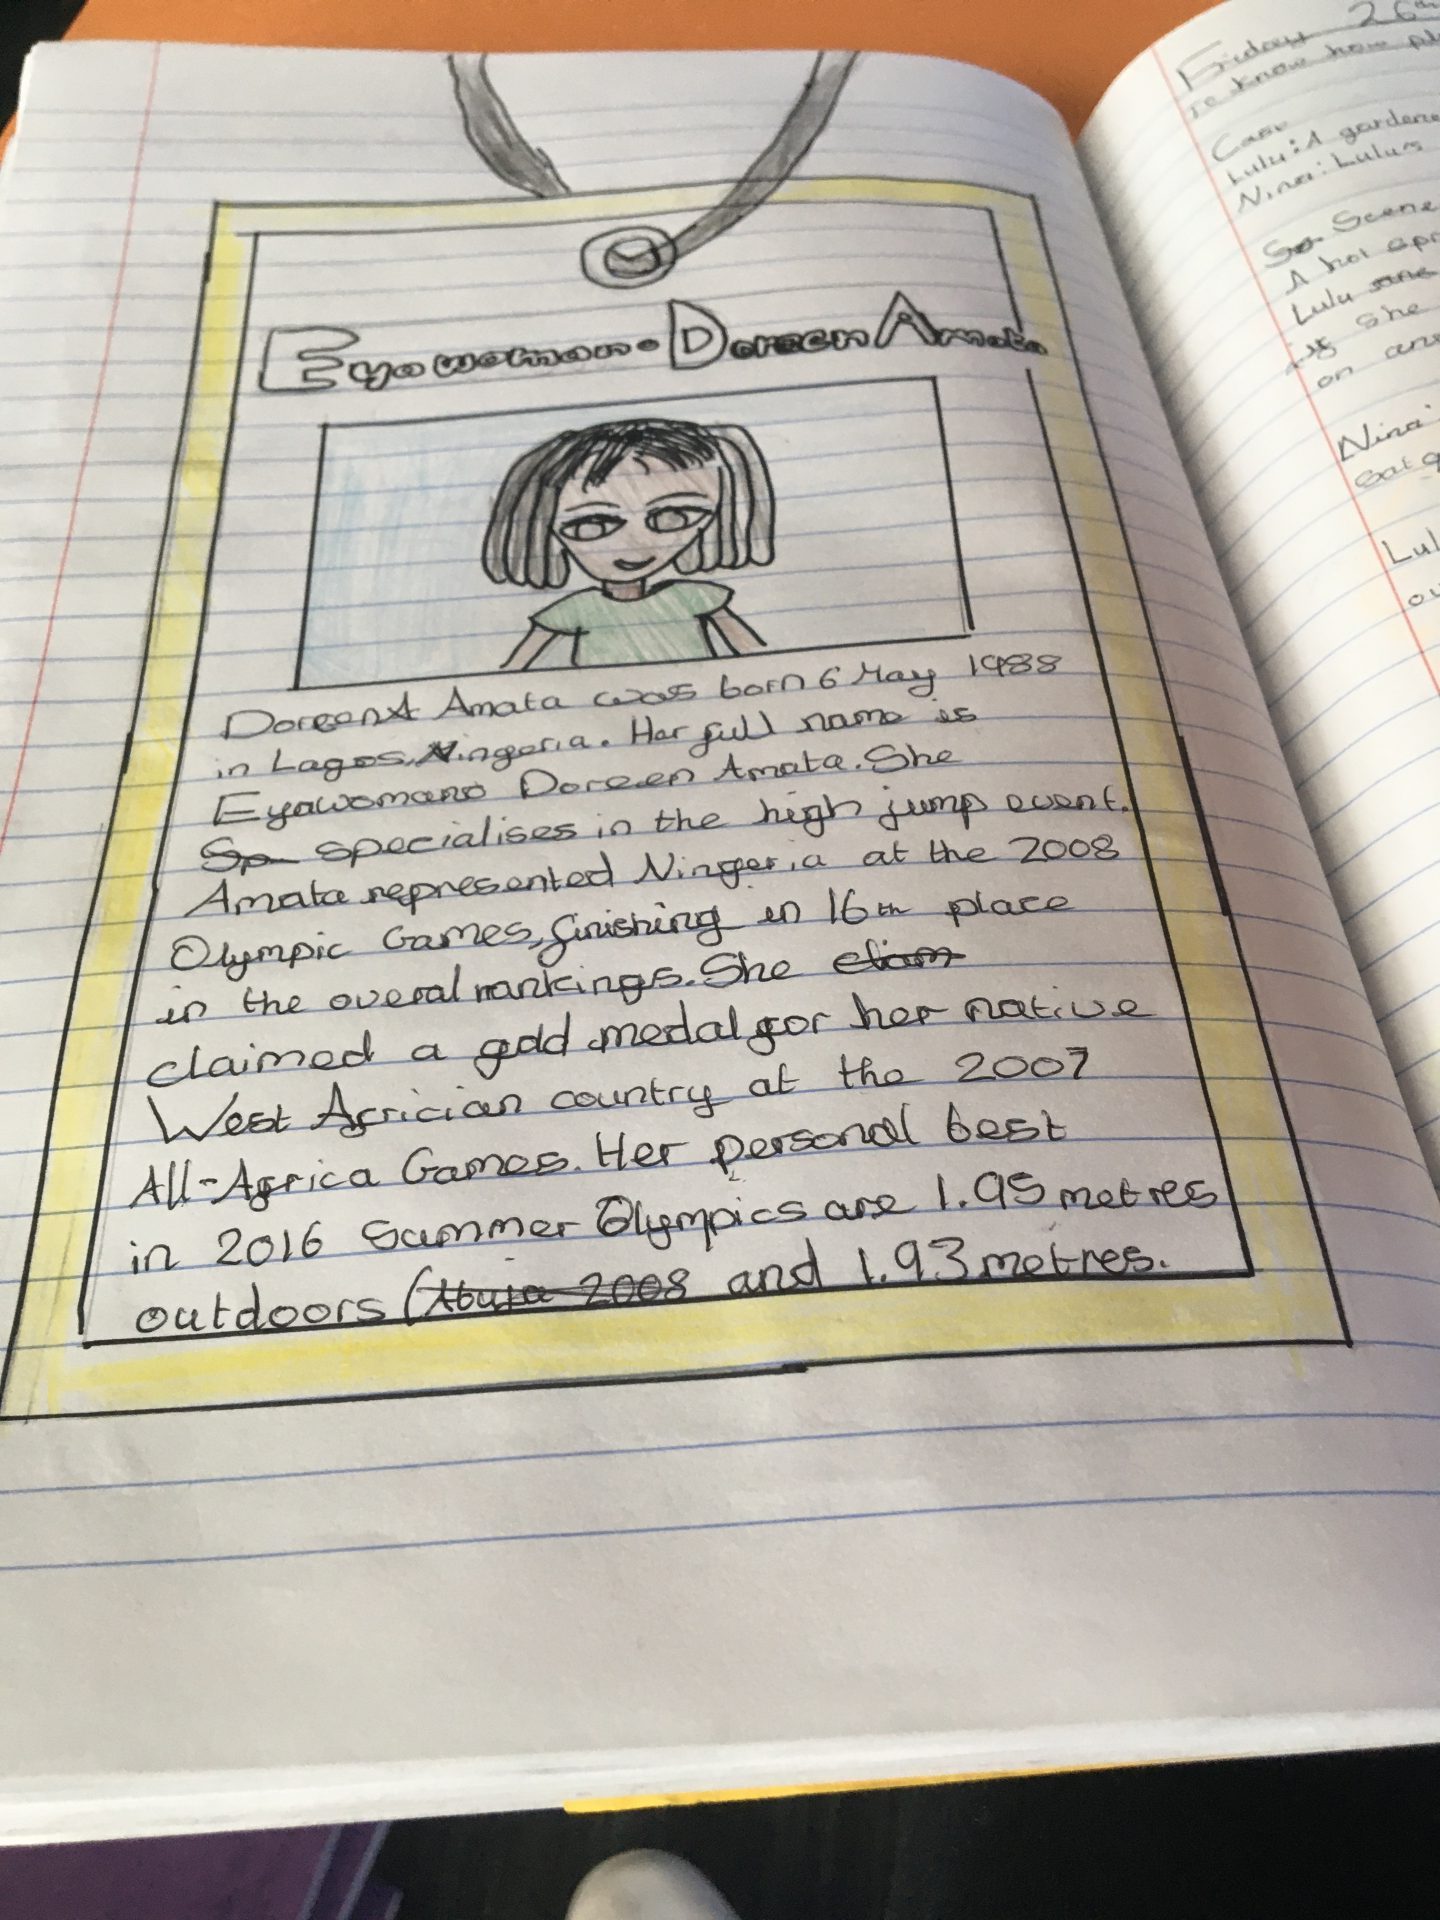 Eyowoman.Doreen Amata
Doreen A Amata was born 6 May 1988
in Lagos, Ningeria. Her full name is
Eyawomano Doreen Amata. She
Sp specialises in the high jump event.
Amata represented Ningeria at the 2008
Olympic Games, finishing in 16th place
in the overal rankings. She claim
claimed a gold medal for her native
West Africian country at the 2007
All-Africa Games. Her personal best
in 2016 Summer Olympics are 1.95 metres
outdoors (Abuja 2008 and 1.93 metres.
Friday 26th
to know how
Cast
Lulu: A gardene
Nina: Lulu's
Sc Scene
A hot spr
Lulu
if She
on
Nina:
Lul